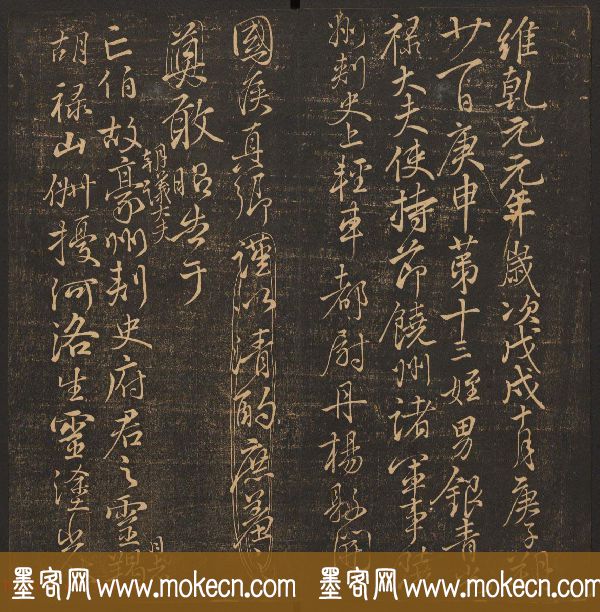 維乾元元年歲次戊戌十月庚子朔
廿一日庚申第十三姪男銀青光
禄大夫使持節饒州諸軍事
州刺史上輕車都尉丹楊縣開
國侯真卿謹以清酌庶羞
奠敢昭告于
朝議大夫
亡伯故豪州刺史府君之靈
胡禄山俶擾河洛生靈塗
墨客网 www.mokecn.com 墨客网 www.mokecn.com